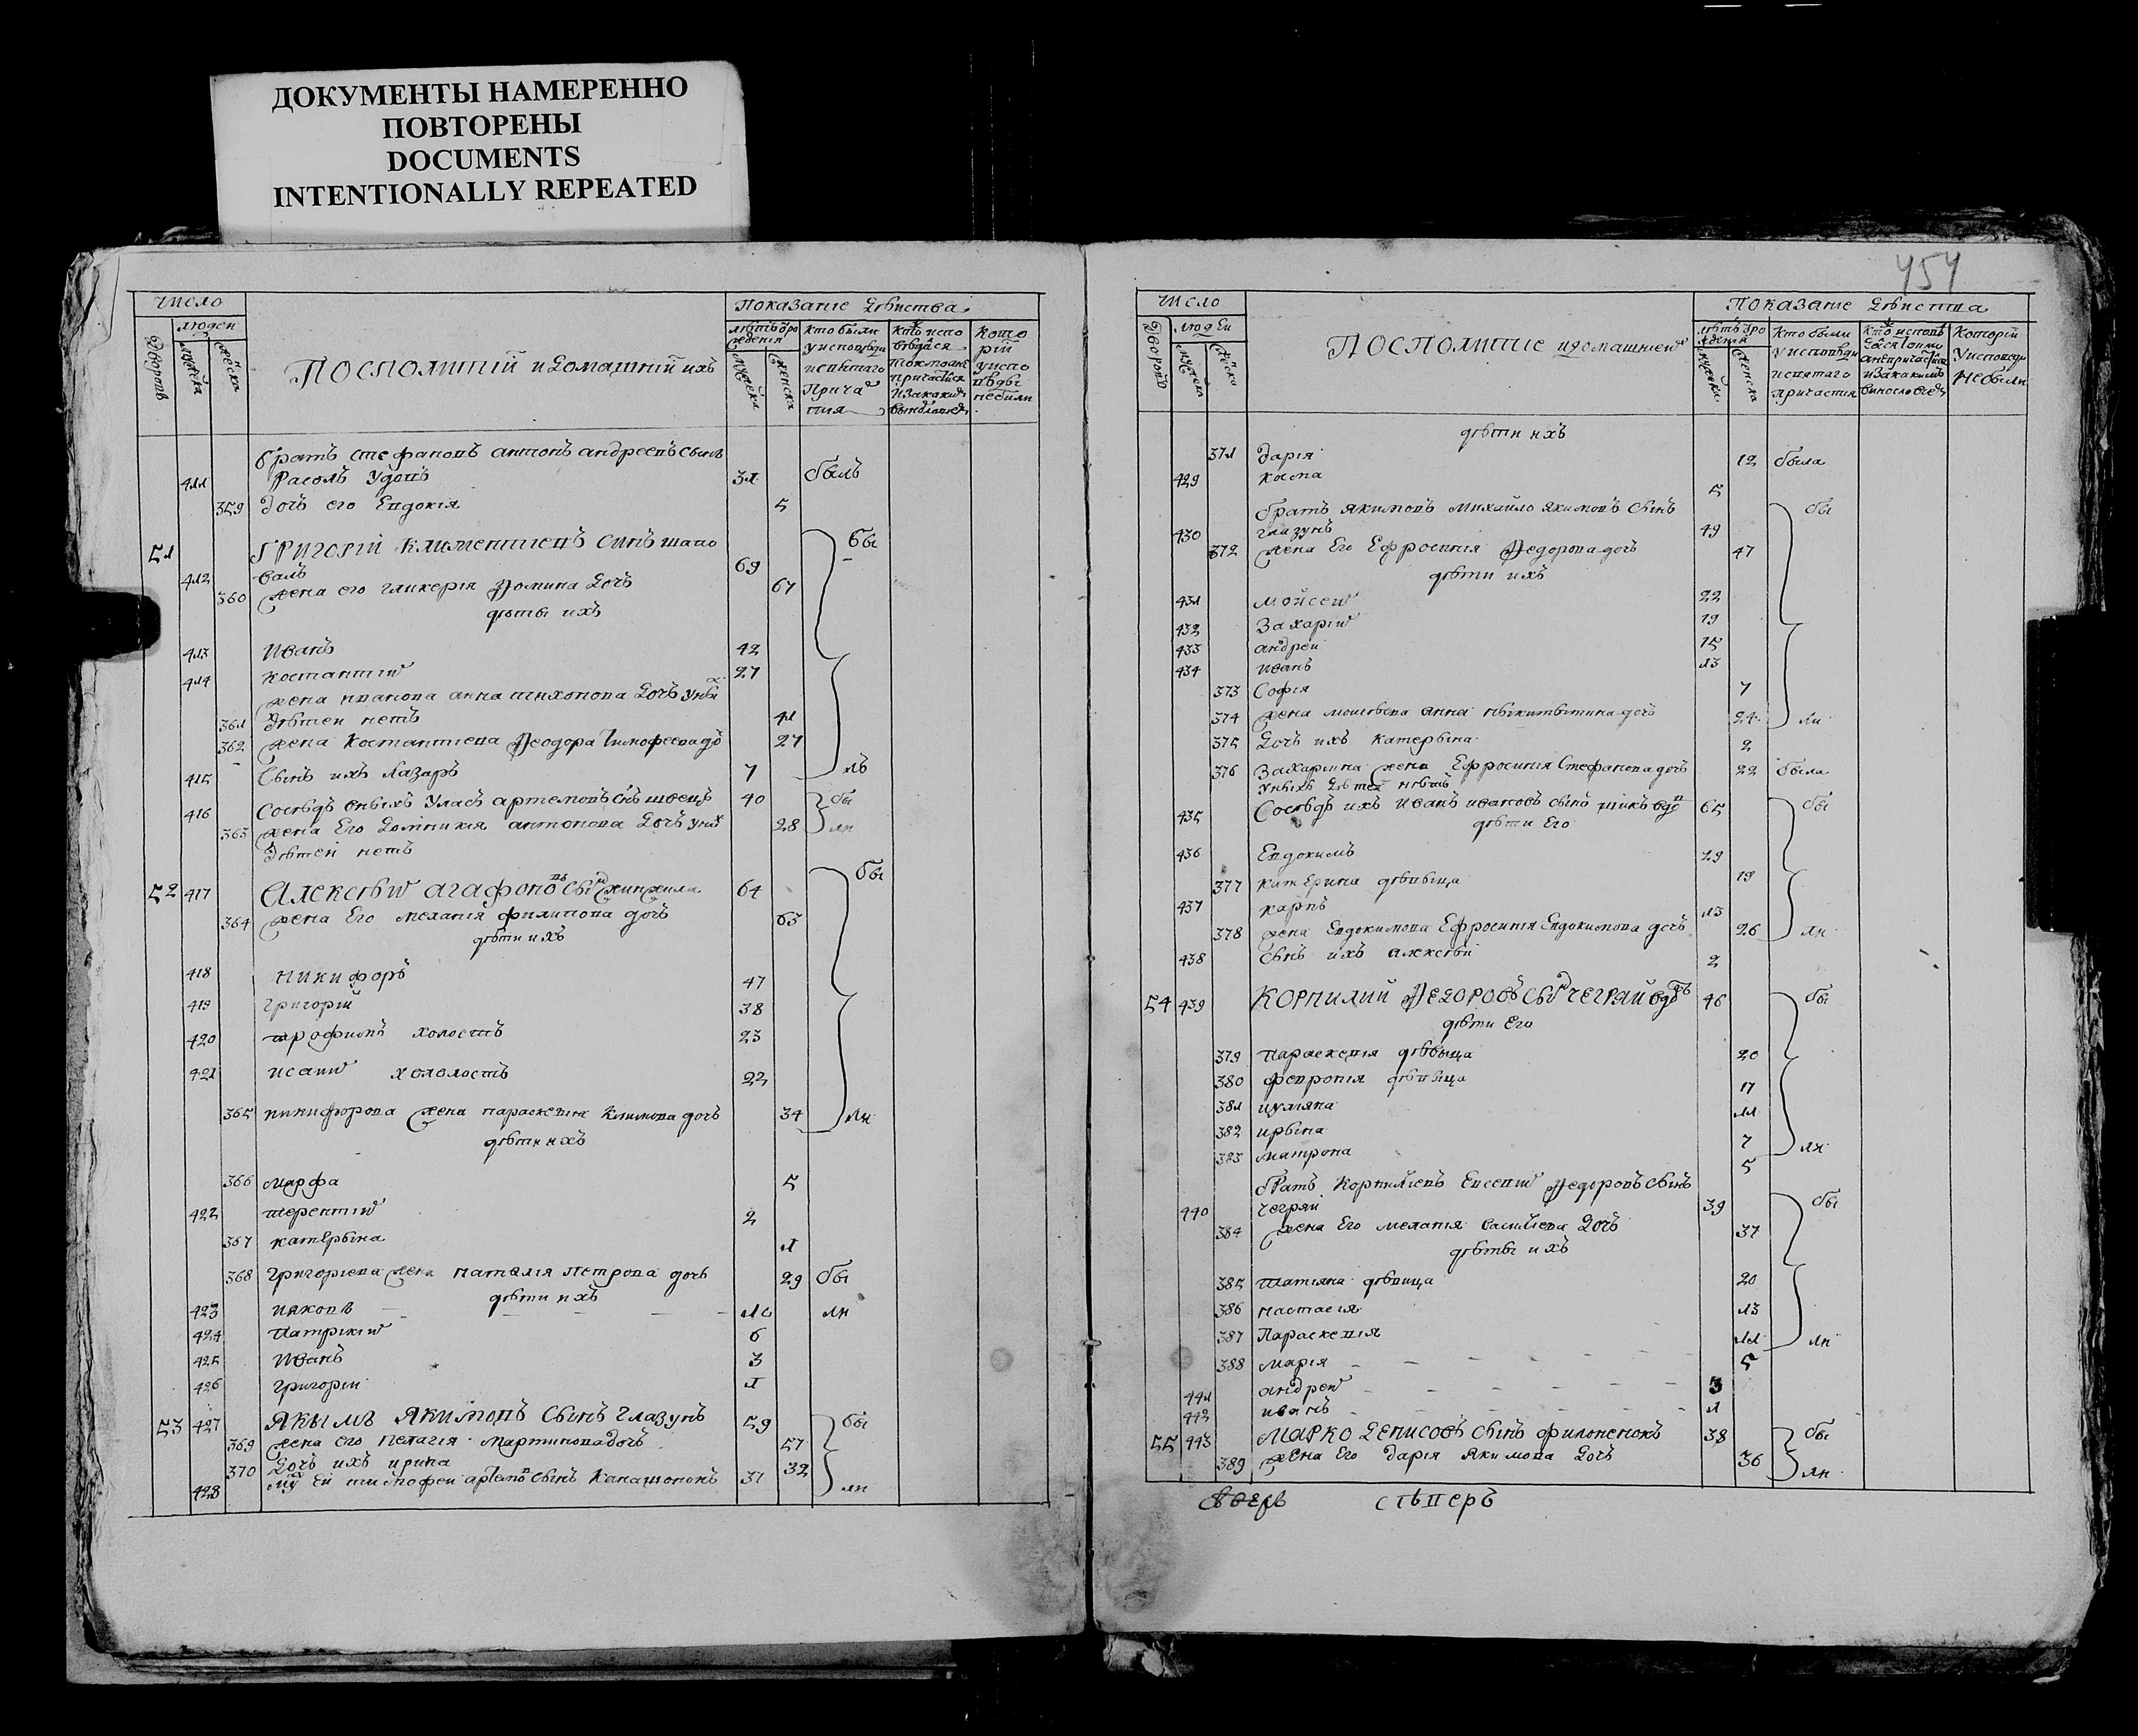 ДОКУМЕНТЫ НАМЕРЕННО
ПОВТОРЕНЫ
DOCUMENTS
INTENTIONALLY REPEATED
454
число
людей
Дворовъ
мужеска
женска
Посполитий и домашний ихъ
Показание действа
мужеска
женска
кто были
у исповеди
и святаго
Прича
стия
кото
рій
у испо
вѣды
небили
братъ стефановъ антонъ андреевъ сынъ
411 Расолъ удовъ 31 былъ
359 дочь его Евдокія 5
51 Григорій климентиевъ синъ шапо
412 валъ 69 бы
360 жена его гликерія Фомина дочь 67
дѣты ихъ
413 Иванъ 42
414 костантий 27
жена иванова анна тихонова дочь у них
361 дѣтей нетъ 41
362 жена костантиева Феодора Тимофеева до 27
415 сынъ ихъ Лазаръ 7 лъ
416 Сосѣдъ оныхъ Уласъ артемовъ снъ швецъ 40 бы
363 жена Его Домникия антонова дочь у них 28 ли
дѣтей нетъ
52 417 Алексѣй агафоновъ сынъ 64 бы
364 жена Его мелания филипова дочь 63
дѣти ихъ
418 никифоръ 47
419 григорій 38
420 трофимъ холостъ 23
421 исаий хололостъ 22
365 никифорова жена параскевия климова дочь 34 ли
дѣти ихъ
366 марфа 5
422 терентий 2
367 катерына 1
368 григориева жена наталія петрова дочь 29 бы
дѣти ихъ
423 ияковъ 10 ли
424 Патрикий 6
425 Иванъ 3
426 григорій 1
53 427 Якымъ якимовъ сынъ глазунъ 59 бы
369 жена его пелагія мартинова дочь 57
370 дочь ихъ ирина 32
428 муж ей тимофей артемов сынъ 37 ли
число
люд ей
Дворовъ
мужеска
женска
Посполитие и домашние их
Показание действа
мужеска
женска
кто были
у исповѣди
и святаго
причастия
которій
у исповеди
небыли
дѣти ихъ
371 дарія 12 была
429 косма 5
братъ якимовъ михайло якимовъ сынъ бы
430 глазунъ 49
372 жена Его Ефросинія Федорова дочь 47
дѣти ихъ
431 мойсей 22
432 захарій 19
433 андрей 15
434 иванъ 13
373 Софія 7
374 жена моисѣева анна дочь 24 ли
375 дочь ихъ катерына 2
376 захариина жена Ефросиния Стефанова дочь 22 была
у ныхъ дѣтей нѣтъ
435 Сосѣдъ ихъ иванъ ивановъ сынъ 65 бы
дѣти Его
436 Евдокимъ 29
377 катерина дѣвыца 19
437 карпъ 13
378 жена Евдокимова Ефросиния Евдокимова дочь 26 ли
438 сынъ ихъ алексѣй 2
54 439 Корнилий Федоровъ сынъ чегряй вдовъ 46 бы
дѣти Его
379 параскевия дѣвыца 20
380 феврония дѣвыца 17
381 иулияна 11
382 ирына 7 ли
383 матрона 5
братъ корнилиевъ Евсевий Федоровъ сынъ
440 чегряй 39 бы
384 жена Его мелания василиева дочь 37
дѣты ихъ
385 татияна дѣвица 20
386 настасия 13
387 Параскевия 11 ли
388 мария 5
441 андрей 3
442 иванъ 1
55 443 Марко Денисовъ сынъ филоненокъ 38 бы
389 жена Его дарія якимова дочь 36 ли